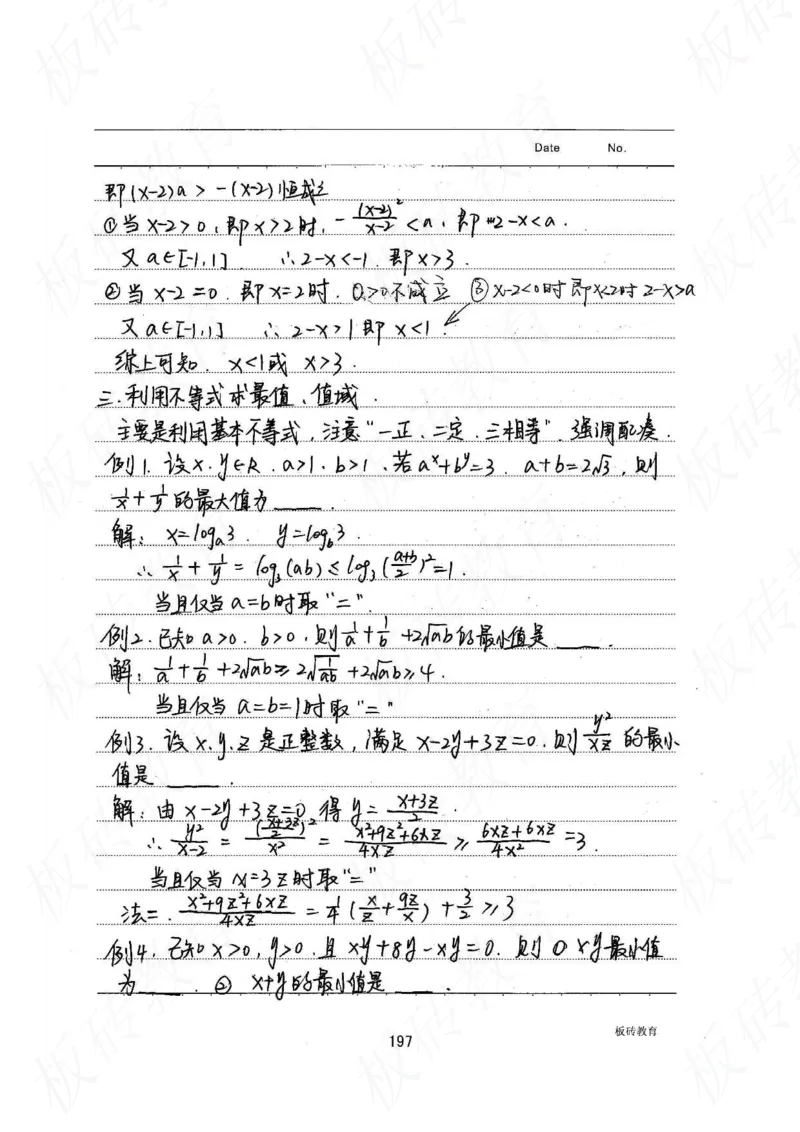 Date No.
即(x-2)a > -(x-2)²恒成立
①当x-2>0,即x>2时,-(x-2)²/(x-2)<a,即2-x<a.
又a∈[-1,1] ∴2-x<-1.即x>3.
②当x-2=0.即x=2时.0>0不成立 ③x-2<0时即x<2时2-x>a
又a∈[-1,1] ∴2-x>1即x<1.
综上可知.x<1或x>3.
三.利用不等式求最值、值域.
主要是利用基本不等式,注意"一正、二定、三相等".强调配凑.
例1.设x.y∈R.a>1.b>1.若a^x+b^y=3.a+b=2√3,则
1/x+1/y的最大值为____.
解:x=logₐ3.y=log_b3.
∴1/x+1/y=log₃(ab)≤log₃((a+b)/2)²=1.
当且仅当a=b时取"=".
例2.已知a>0.b>0,则1/a+1/b+2√ab的最小值是____.
解:1/a+1/b+2√ab≥2√(1/ab)+2√ab≥4.
当且仅当a=b=1时取"="
例3.设x.y.z是正整数,满足x-2y+3z=0.则y²/xz的最小
值是____.
解:由x-2y+3z=0得y=(x+3z)/2.
∴y²/(x-2)=((x+3z)/2)²/x²=(x²+9z²+6xz)/4xz≥(6xz+6xz)/4x²=3.
当且仅当x=3z时取"="
法二.(x²+9z²+6xz)/4xz=1/4(x/z+9z/x)+3/2≥3
例4.已知x>0,y>0.且xy+8y-xy=0.则①xy最小值
为____.②x+y的最小值是____.
197
板砖教育